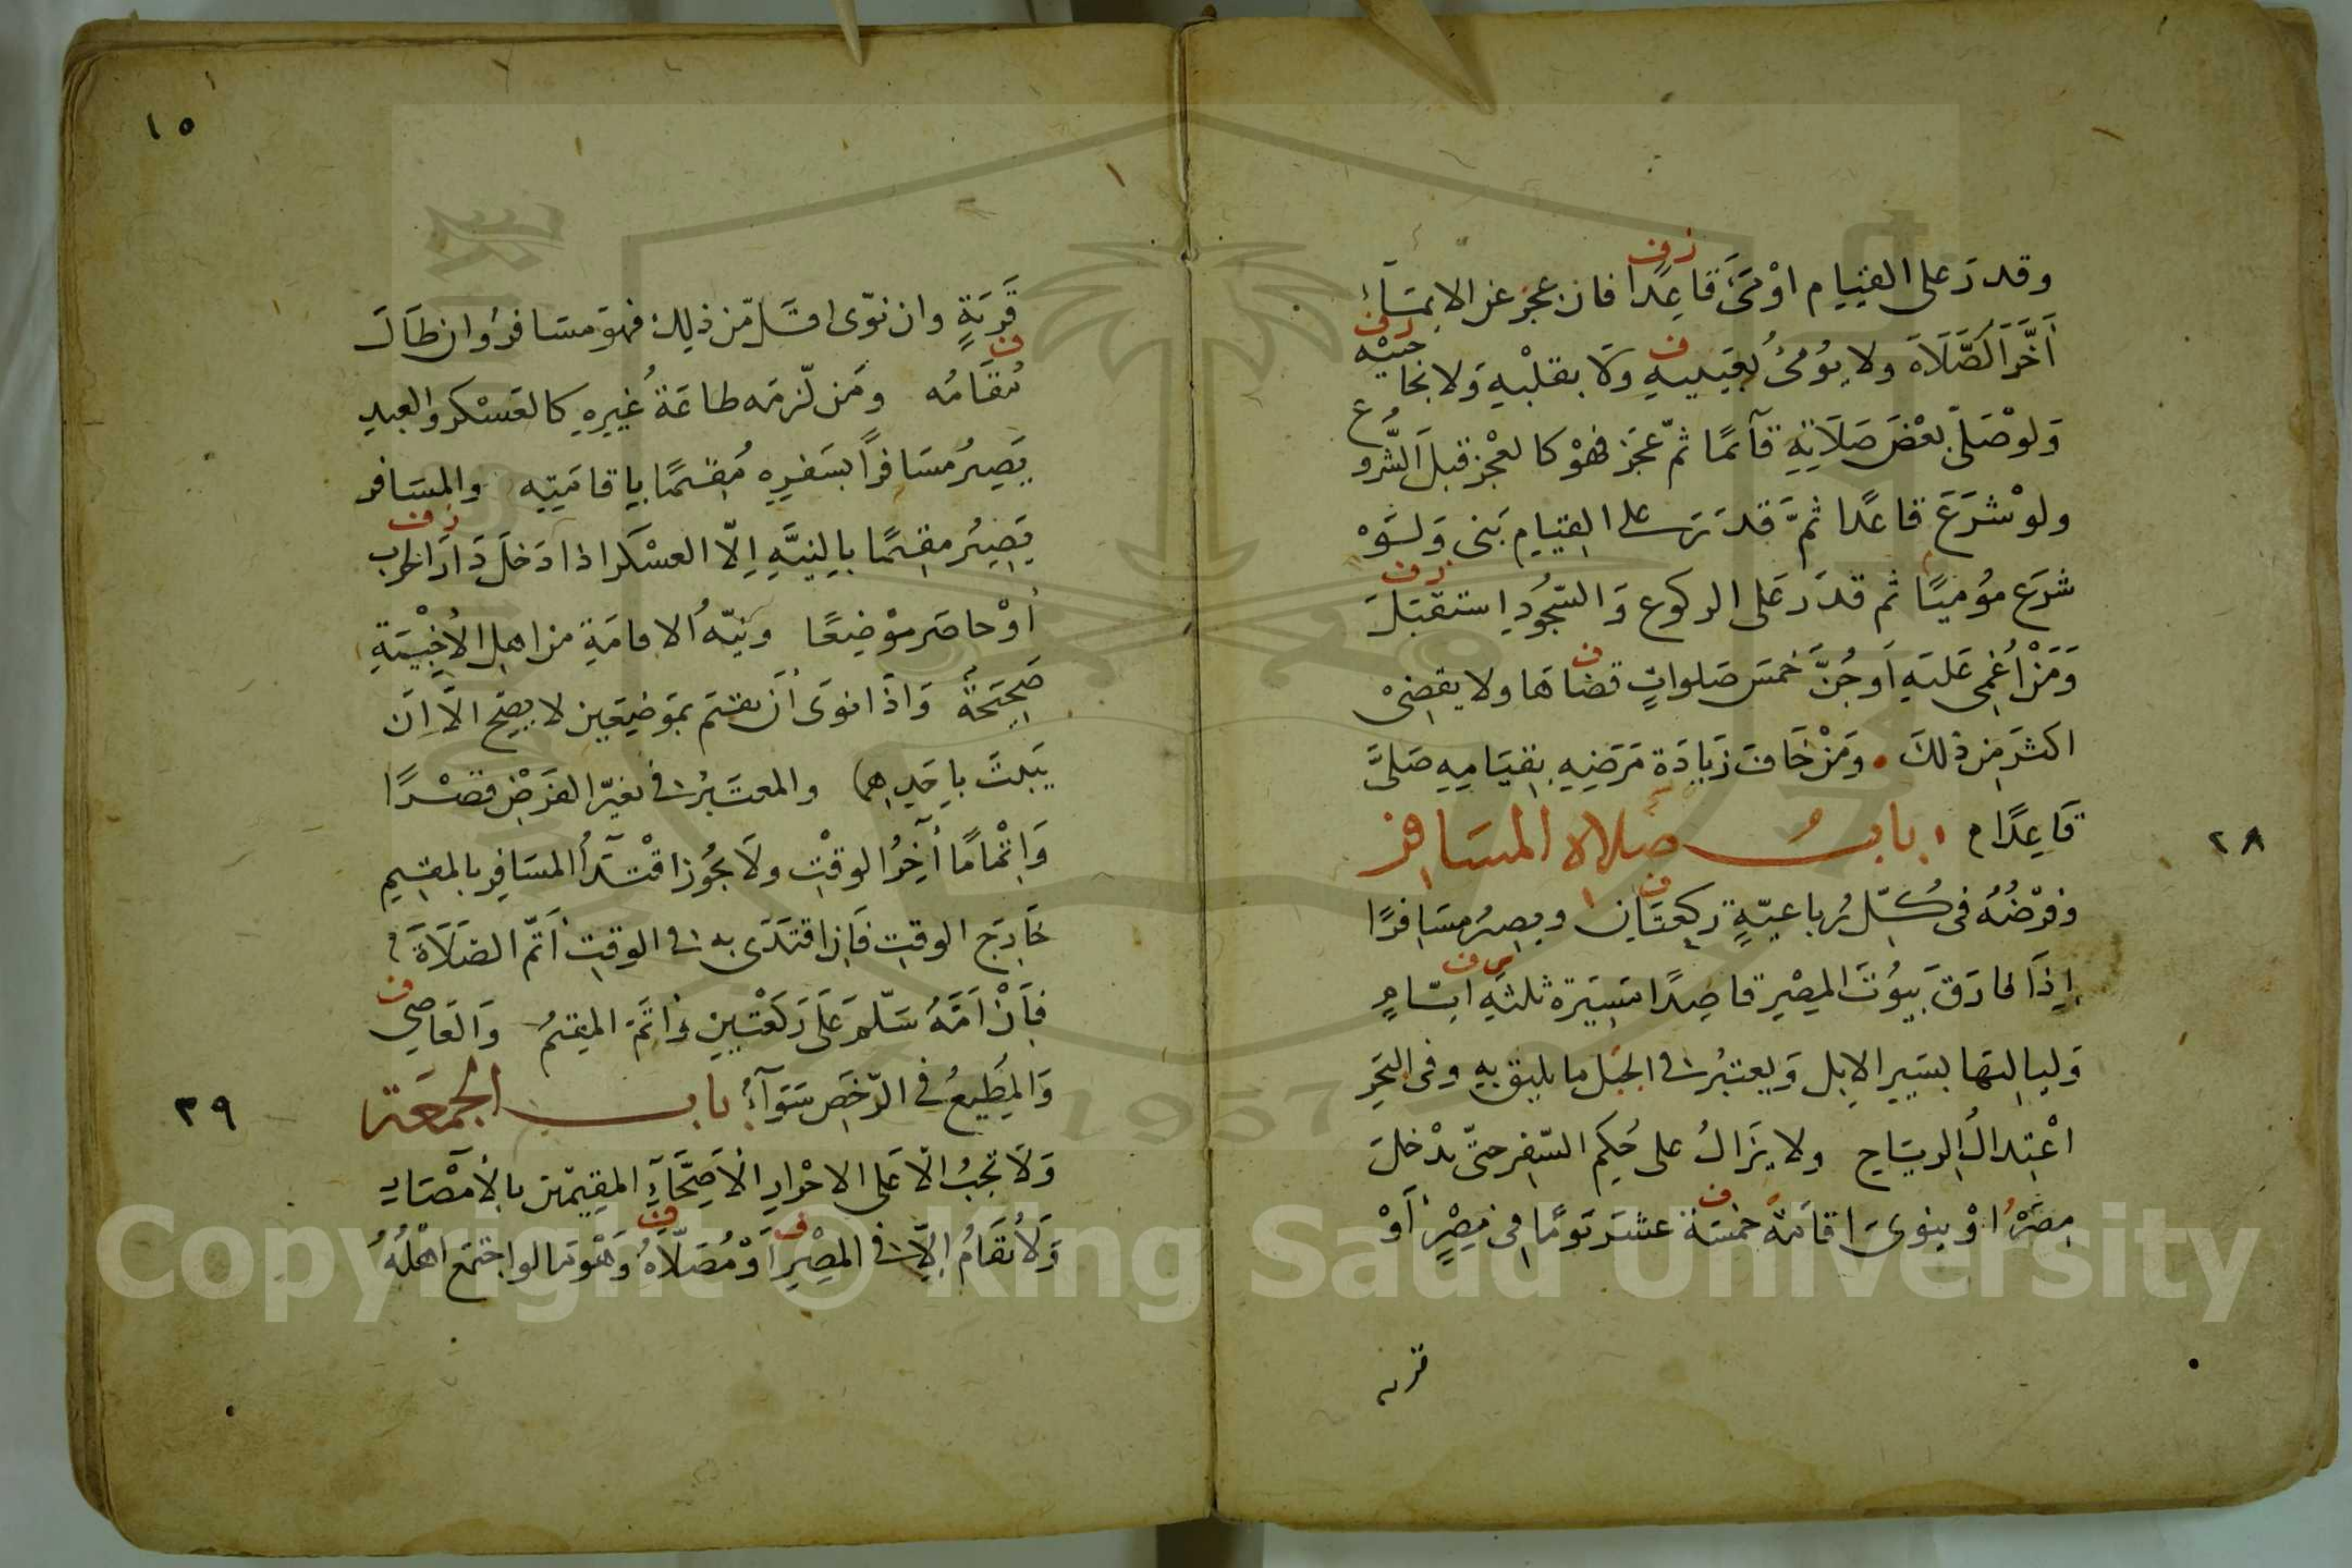 وقدر على القيام اوْمَى قاعِدًا فان عجز عن الايماء
اَخَّرَ الصَّلَاةَ ولا يُومئُ بعَينيهِ وَلَا بقلْبهِ وَلا بحاجبيْه
وَلوْ صَلى بعْضَ صَلَاتِهِ قآئمًا ثمّ عَجَز فهْوَ كالعجْز قبلَ الشُّروع
ولوْ شرَعَ قاعدًا ثمَّ قدَرَ على القيام بَنى وَلَوْ
شرَع مؤميًا ثم قدَر عَلى الركوع وَالسّجُودِ استقبَلَ
وَمَنْ اُغمى عَليَهِ اَوجُنَّ خمسَ صَلواتٍ قضاهَا ولا يقضىْ
اكثرَ مِن ذلكَ • ومَنْ خَافَ زيَادَة مَرَضِهِ بقيَامِهِ صَلىَّ
قاعِدًا م باب صلاه المسَافر
وَفرْضُهُ فى كلّ رُباعيّةٍ ركعتَان ويصيرُ مسَافرًا
اِذَا فارَقَ بيُوتَ المِصْرِ قاصِدًا مَسِيَرة ثلثَهِ ايّامٍ
وَلياليهَا بسَيرِ الابل وَيعتبرُ فى الجَبل ما يليق بهِ وفى البَحرِ
اعْتِدالُ الريَاح ولا يزَالُ على حُكم السّفر حتّى يدْخلَ
مِصْرَهُ اوْ ينوىَ اقامَةَ خمسَة عشرَ يَومًا فى مِصْرٍ اَوْ
قريه
٢٨
١٥
قَريَةٍ وان نوَى اقلّ مّن ذلِك فهوَ مسَافرُ وان طَالَ
مُقَامُه ومَن لزمَه طاعَةُ غيرِهِ كالعَسْكر والعبدِ
يَصِيرُ مُسَافرًا بسَفرِهِ مُقيمًا باِقامَتِه والمسَافر
يَصيرُ مقيمًا باِلنيَّهِ اِلّا العسْكرَ اذا دَخلَ دَارَ الحَرب
اُوْ حاصَر موْضعًا ونيّهُ الاقامَةِ من اهل الاَخْبيَةِ
صَحِيَحَةُ وَاذَا نوَى اَن يقيَم بمَوضِعَين لا يصِح الّا اِن
يَبيتَ باِحَدِهما والمعتَبرُ فى تغيّر الفَرَض قصْرًا
وَاِتْمامًا اخِرُ الوقْتِ ولَا يجُوز اقْتِدآءُ المسَافِر بالمقِيم
خَارجَ الوقتِ فَاِن اقتَدَى بهِ فى الوقتِ اَتمّ الصّلَاةَ
فاِنْ اَمَّهُ سَلّمَ عَلَى رَكعْتيْنِ وَاتمّ المقيمُ وَالعَاصِى
وَالمطِيعُ فى الرّخَص سَوَآءُ باب الجمعَة
وَلَا تجبُ الّا عَلى الاحْرارِ الاَصِحَّآءِ المقِيمِين بالاَمْصَارِ
وَلَا تقَامُ اِلّا فى المِصْرِ اَوْ مُصَلّاهُ وَهْوَ مَا لو اجتمَع اهْلُهُ
٣٩